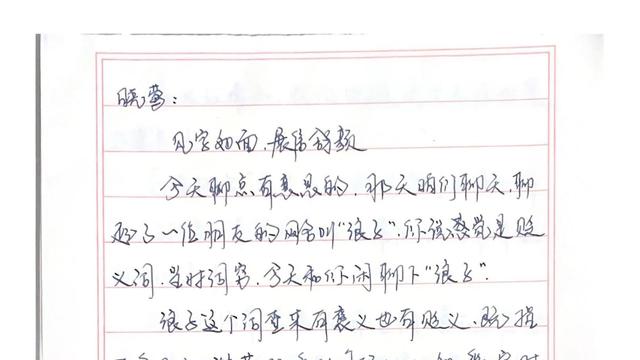 晓莺:
见字如面,展信舒颜
今天聊点有意思的,那天咱们聊天,聊
到了一位朋友的网名叫"浪子",你说感觉是贬
义词,当时词穷,今天和你闲聊下"浪子".
浪子这个词查来有褒义也有贬义,既指